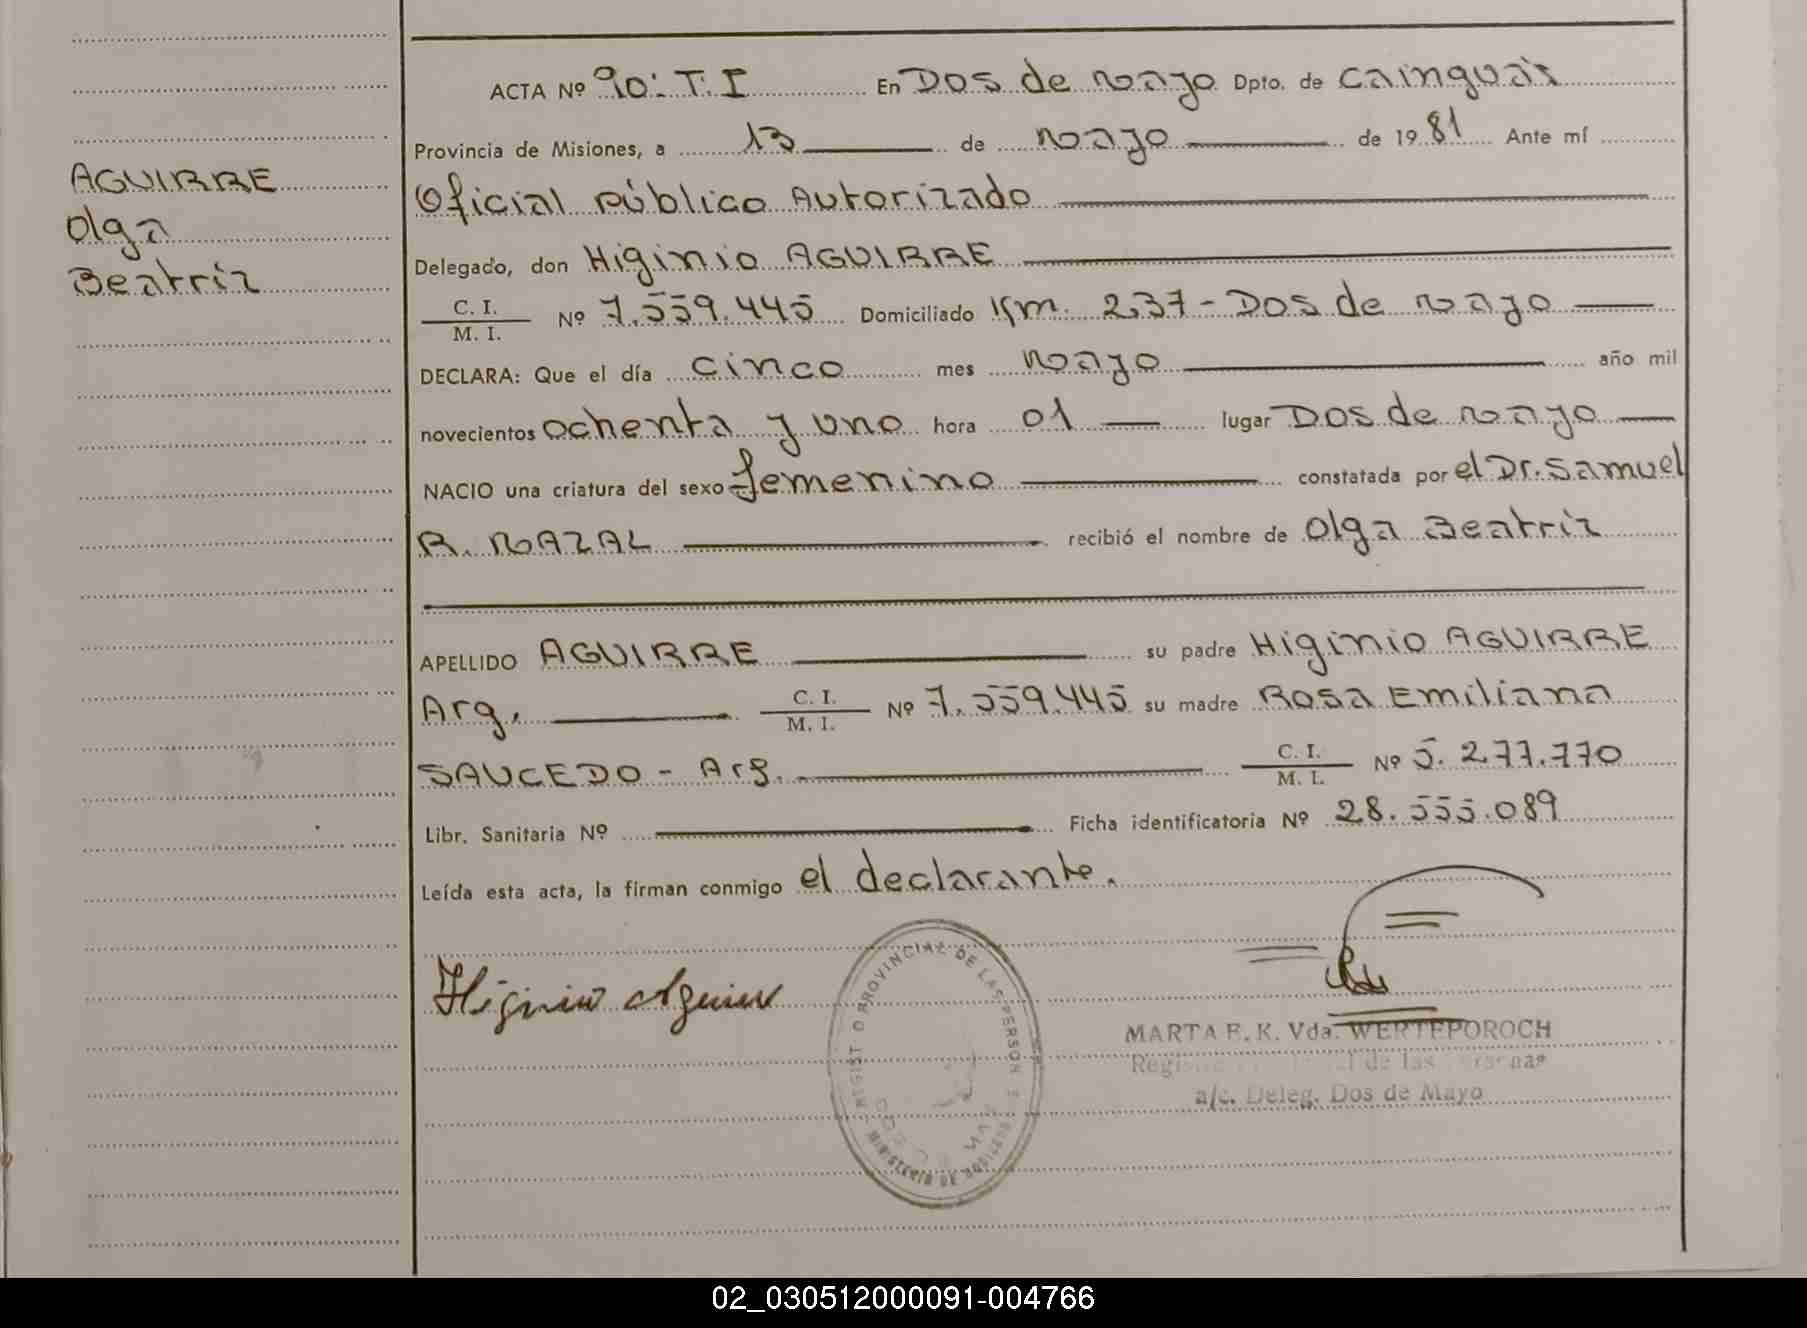 AGUIRRE
Olga
Beatriz
ACTA Nº 90: T.I En Dos de Mayo Dpto. de Cainguás
Provincia de Misiones, a 13 de Mayo de 1981 Ante mí
Oficial Público Autorizado
Delegado, don Higinio AGUIRRE
C. I.
M. I.
Nº 7.559.445 Domiciliado Km. 237 - Dos de Mayo
DECLARA: Que el día cinco mes Mayo año mil
novecientos ochenta y uno hora 01 lugar Dos de Mayo
NACIO una criatura del sexo femenino constatada por el Dr. Samuel
R. MAZAL recibió el nombre de Olga Beatriz
APELLIDO AGUIRRE su padre Higinio AGUIRRE
Arg. C. I. M. I. Nº 7.559.445 su madre Rosa Emiliana
SAUCEDO - Arg. C. I. M. I. Nº 5.277.770
Libr. Sanitaria Nº Ficha identificatoria Nº 28.555.089
Leída esta acta, la firman conmigo el declarante.
Higinio Aguirre
PROVINCIAL DE LAS PERSON
MINISTERIO DE
MARTA E. K. Vda. WERTEPOROCH
de las
a/c. Deleg. Dos de Mayo
02_030512000091-004766